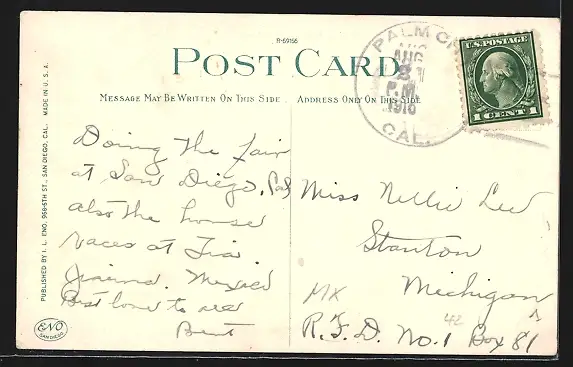 R-69166
POST CARD
MESSAGE MAY BE WRITTEN ON THIS SIDE
ADDRESS ONLY ON THIS SIDE
PALM
AUG
31
P.M.
1916
CAL.
U.S. POSTAGE
1 CENT 1
MADE IN U.S.A.
PUBLISHED BY I. L. ENO, 966-6TH ST., SAN DIEGO, CAL.
ENO
SAN DIEGO
Doing the fair
at San Diego, Cal
also the horse
races at Tia
Jiuana. Mexico
Best love to all
Bert
Miss Nellie Lee
Stanton
Michigan
R.F.D. No. 1 Box 81
MX
42